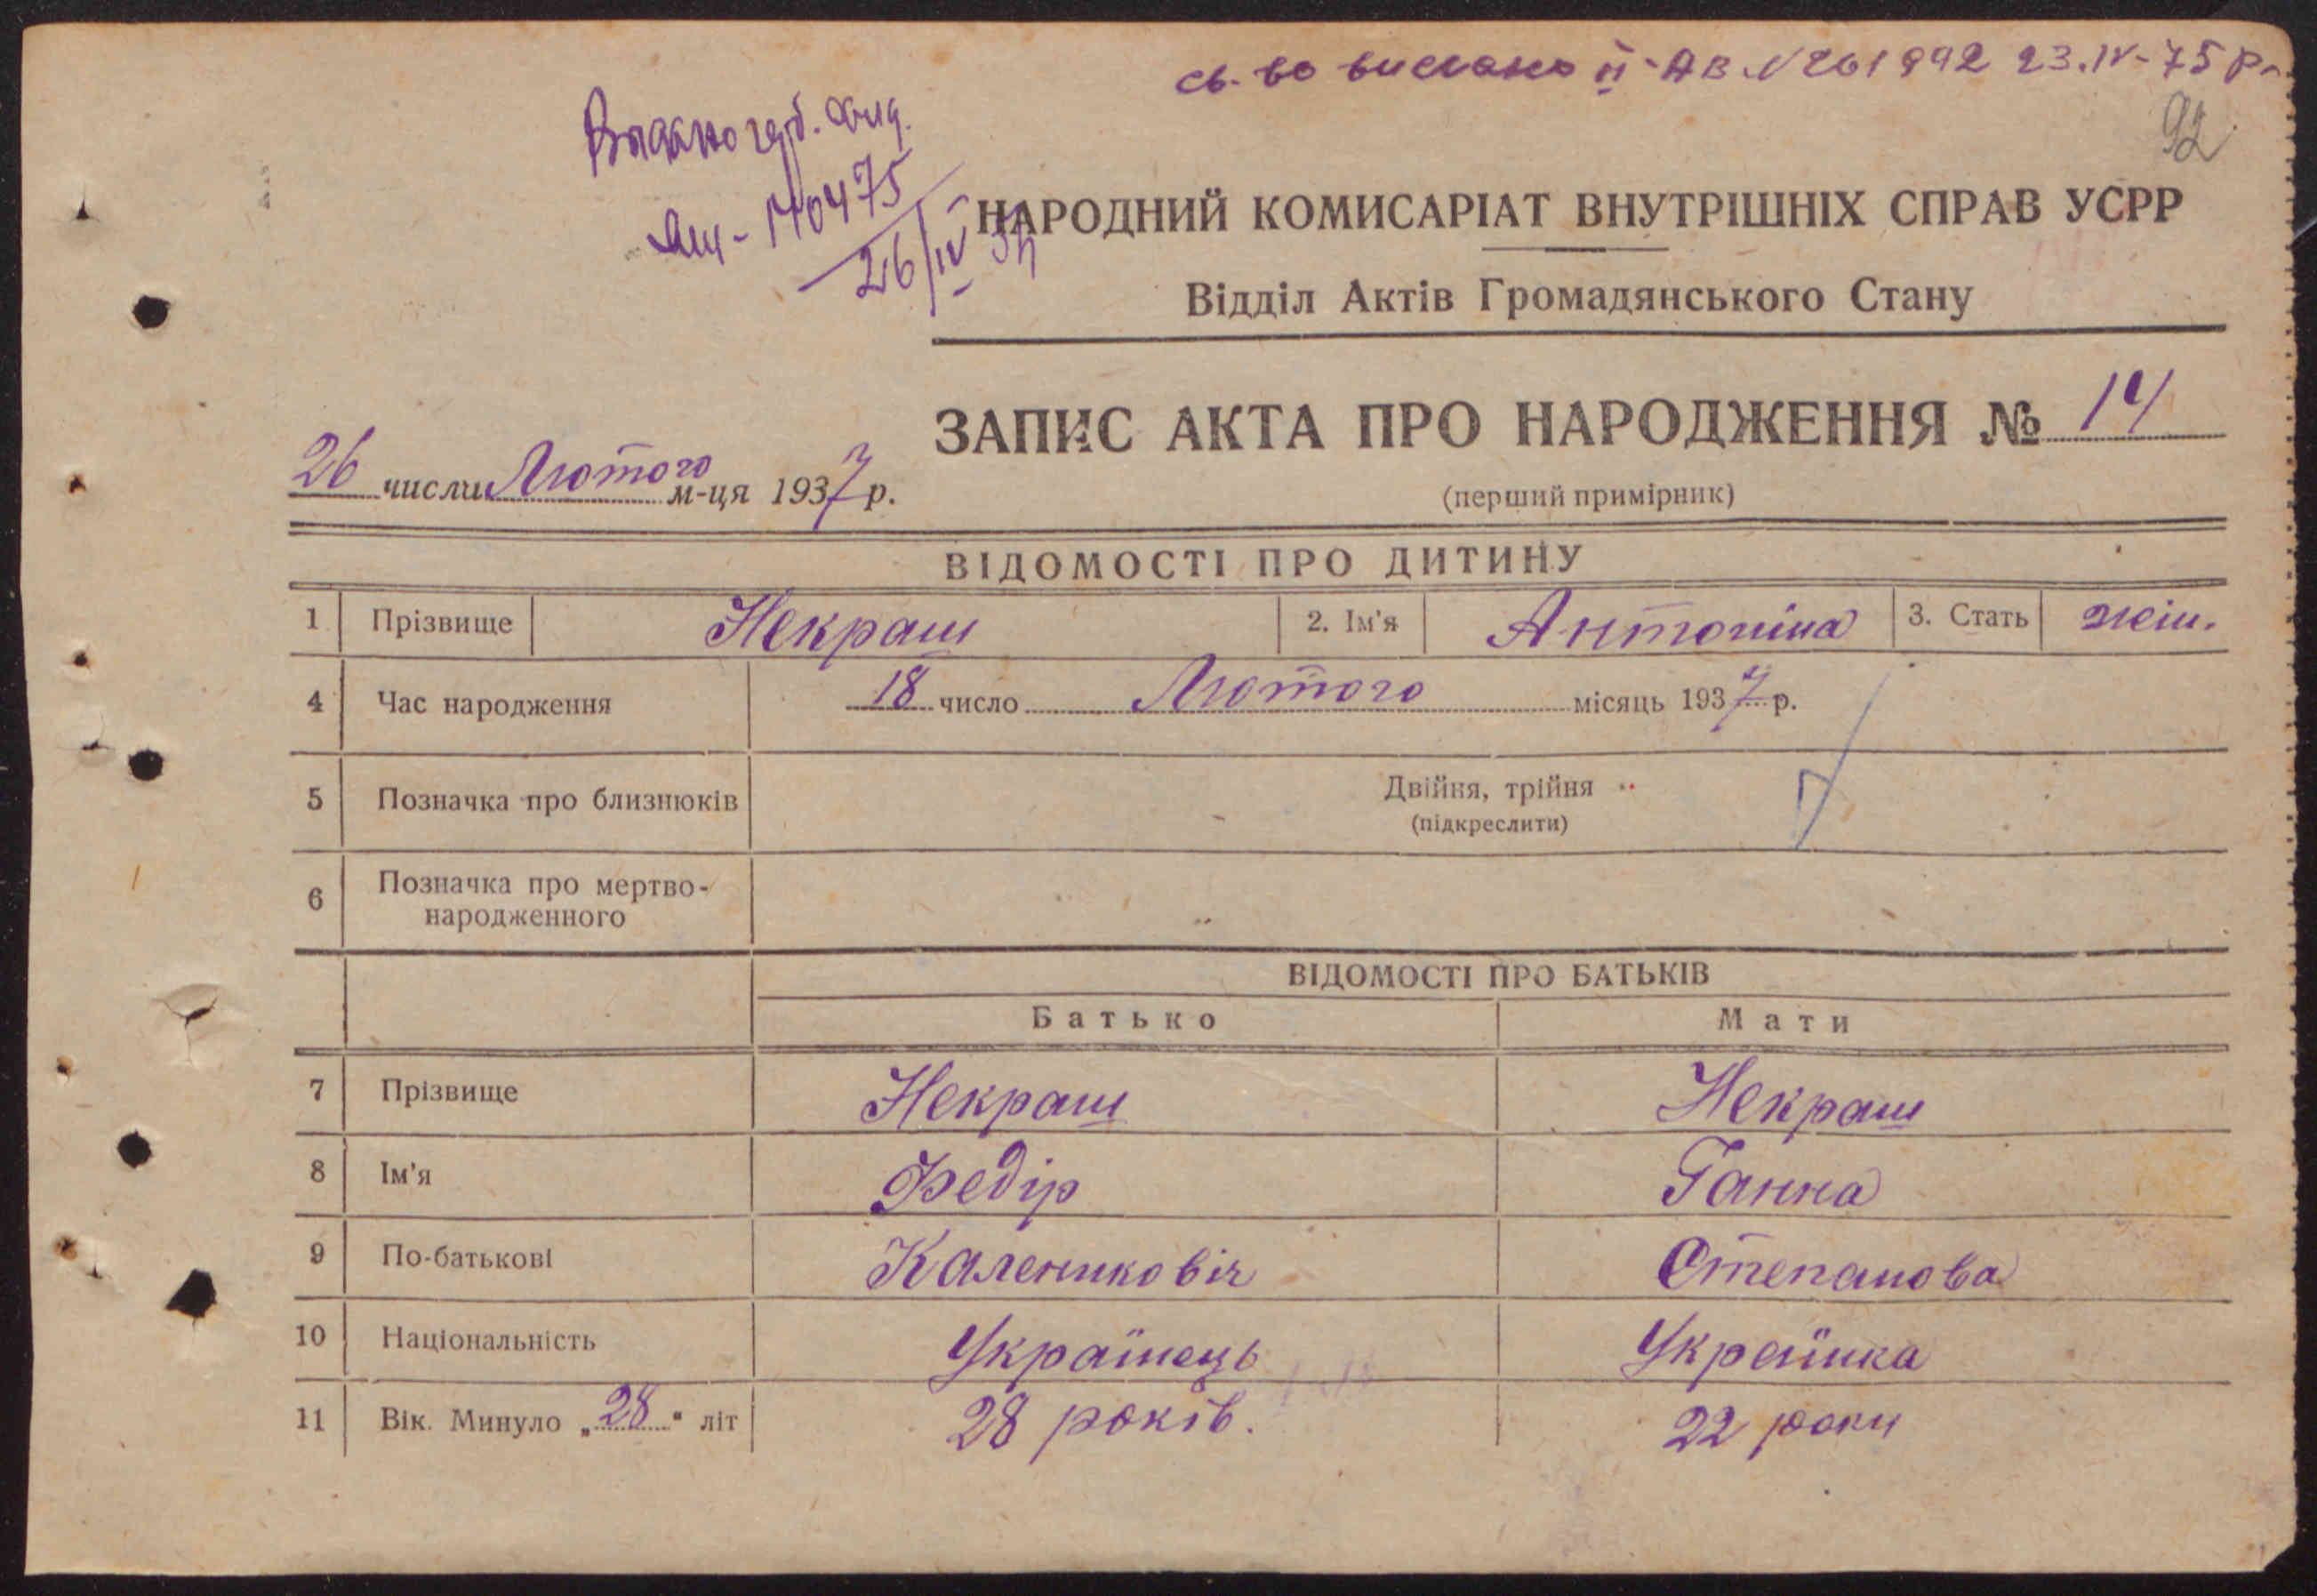 св-во выслано II-АВ №261992 23.IV-75р.
92
Видано
26/IV
НАРОДНИЙ КОМИСАРІАТ ВНУТРІШНІХ СПРАВ УСРР
Відділ Актів Громадянського Стану
ЗАПИС АКТА ПРО НАРОДЖЕННЯ № 14
26 числа Лютого м-ця 1937 р.
(перший примірник)
ВІДОМОСТІ ПРО ДИТИНУ
1 Прізвище Некраш 2. Ім'я Антоніна 3. Стать жін.
4 Час народження 18 число Лютого місяць 1937 р.
5 Позначка про близнюків Двійня, трійня
(підкреслити)
6 Позначка про мертво-
народженного
ВІДОМОСТІ ПРО БАТЬКІВ
Батько Мати
7 Прізвище Некраш Некраш
8 Ім'я Федір Ганна
9 По-батькові Калениковіч Степанова
10 Національність Українець Українка
11 Вік. Минуло „28" літ 28 років. 22 роки